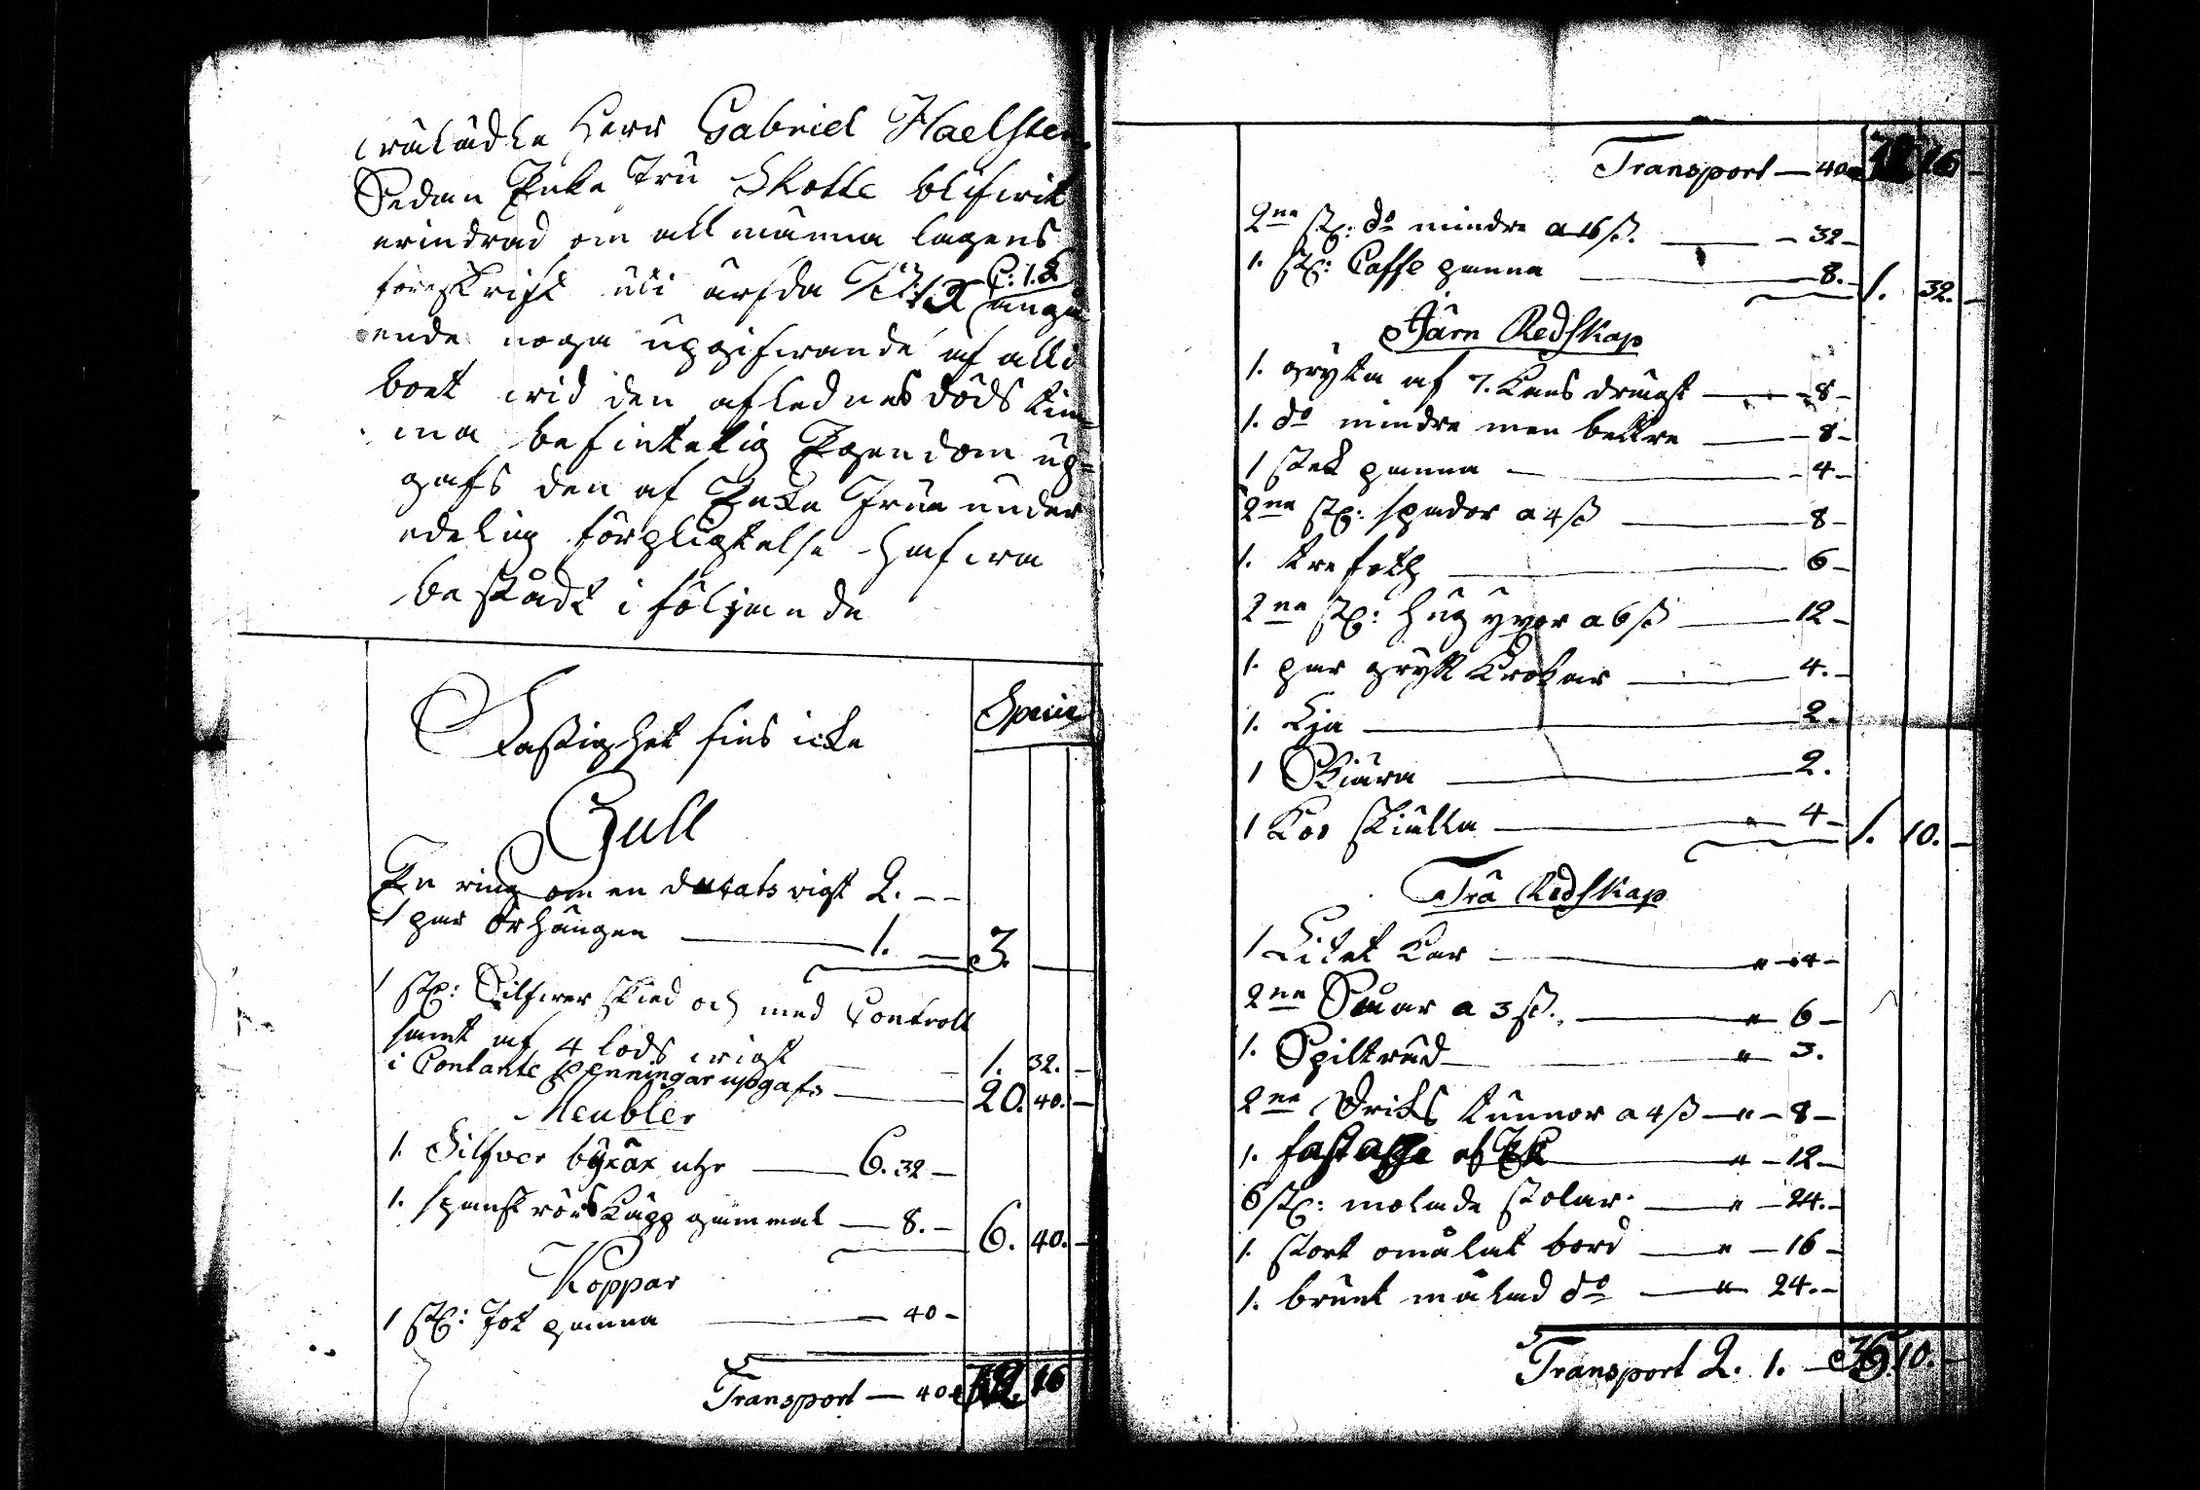 wälädle Herr Gabriel Haelsten
Sedan Enke Fru Skotte blifwit
erindrad om allmänna lagens
föreskrift uti ärfda B: 12 C: 1. §
angå
ende noga upgifwande af all i
boet wid den aflednes döds tim=
ma befintelig Egendom up=
gafs den af Enke Fruen under
edelig förpligtelse hafwa
bestådt i följande
Specie
Fastighet fins icke
Gull
En ring om en ducats vigt 2. — —
1 par örhängen — 1. — 3. —
1 st: Silfwer skied och med Controll
samt af 4 lods wigt — 1. 32. —
i Contante Penningar upgafs — 20. 40. —
Meubler
1. Silfver byxäx uhr — 6. 32 —
1. spansk rörs Käpp gammal — 8. — 6. 40. —
Koppar
1 st: Fot panna — 40 —
Transport — 40 32. 16
Transport — 40 32 16 —
2ne st: do mindre a 16 ß. — 32 —
1. st: Caffe panna — 8. — 1. 32. —
Järn Redskap
1. gryta af 7. Kans drygt — 8 —
1. do mindre men bettre — 8 —
1 stek panna — 4 —
2ne st: spador a 4 ß — 8 —
1. trefoth — 6 —
2ne st: hug yxor a 6 ß — 12 —
1. par gryt Krokar — 4. —
1. Lja — 2 —
1 Skiära — 2.
1 Koo skiälla — 4 — 1. 10. —
Trä Redskap
1 Litet Kar — " 4 —
2ne Såar a 3 ß. — " 6 —
1. Spiltråd — " 3.
2ne Driks tunnor a 4 ß — " — 8 —
1. fastage — " — 12 —
6 st: målade stolar — " — 24. —
1. stort omålat bord — " — 16 —
1. brunt målad do — " 24. —
Transport 2. 1. — 36. 10. —